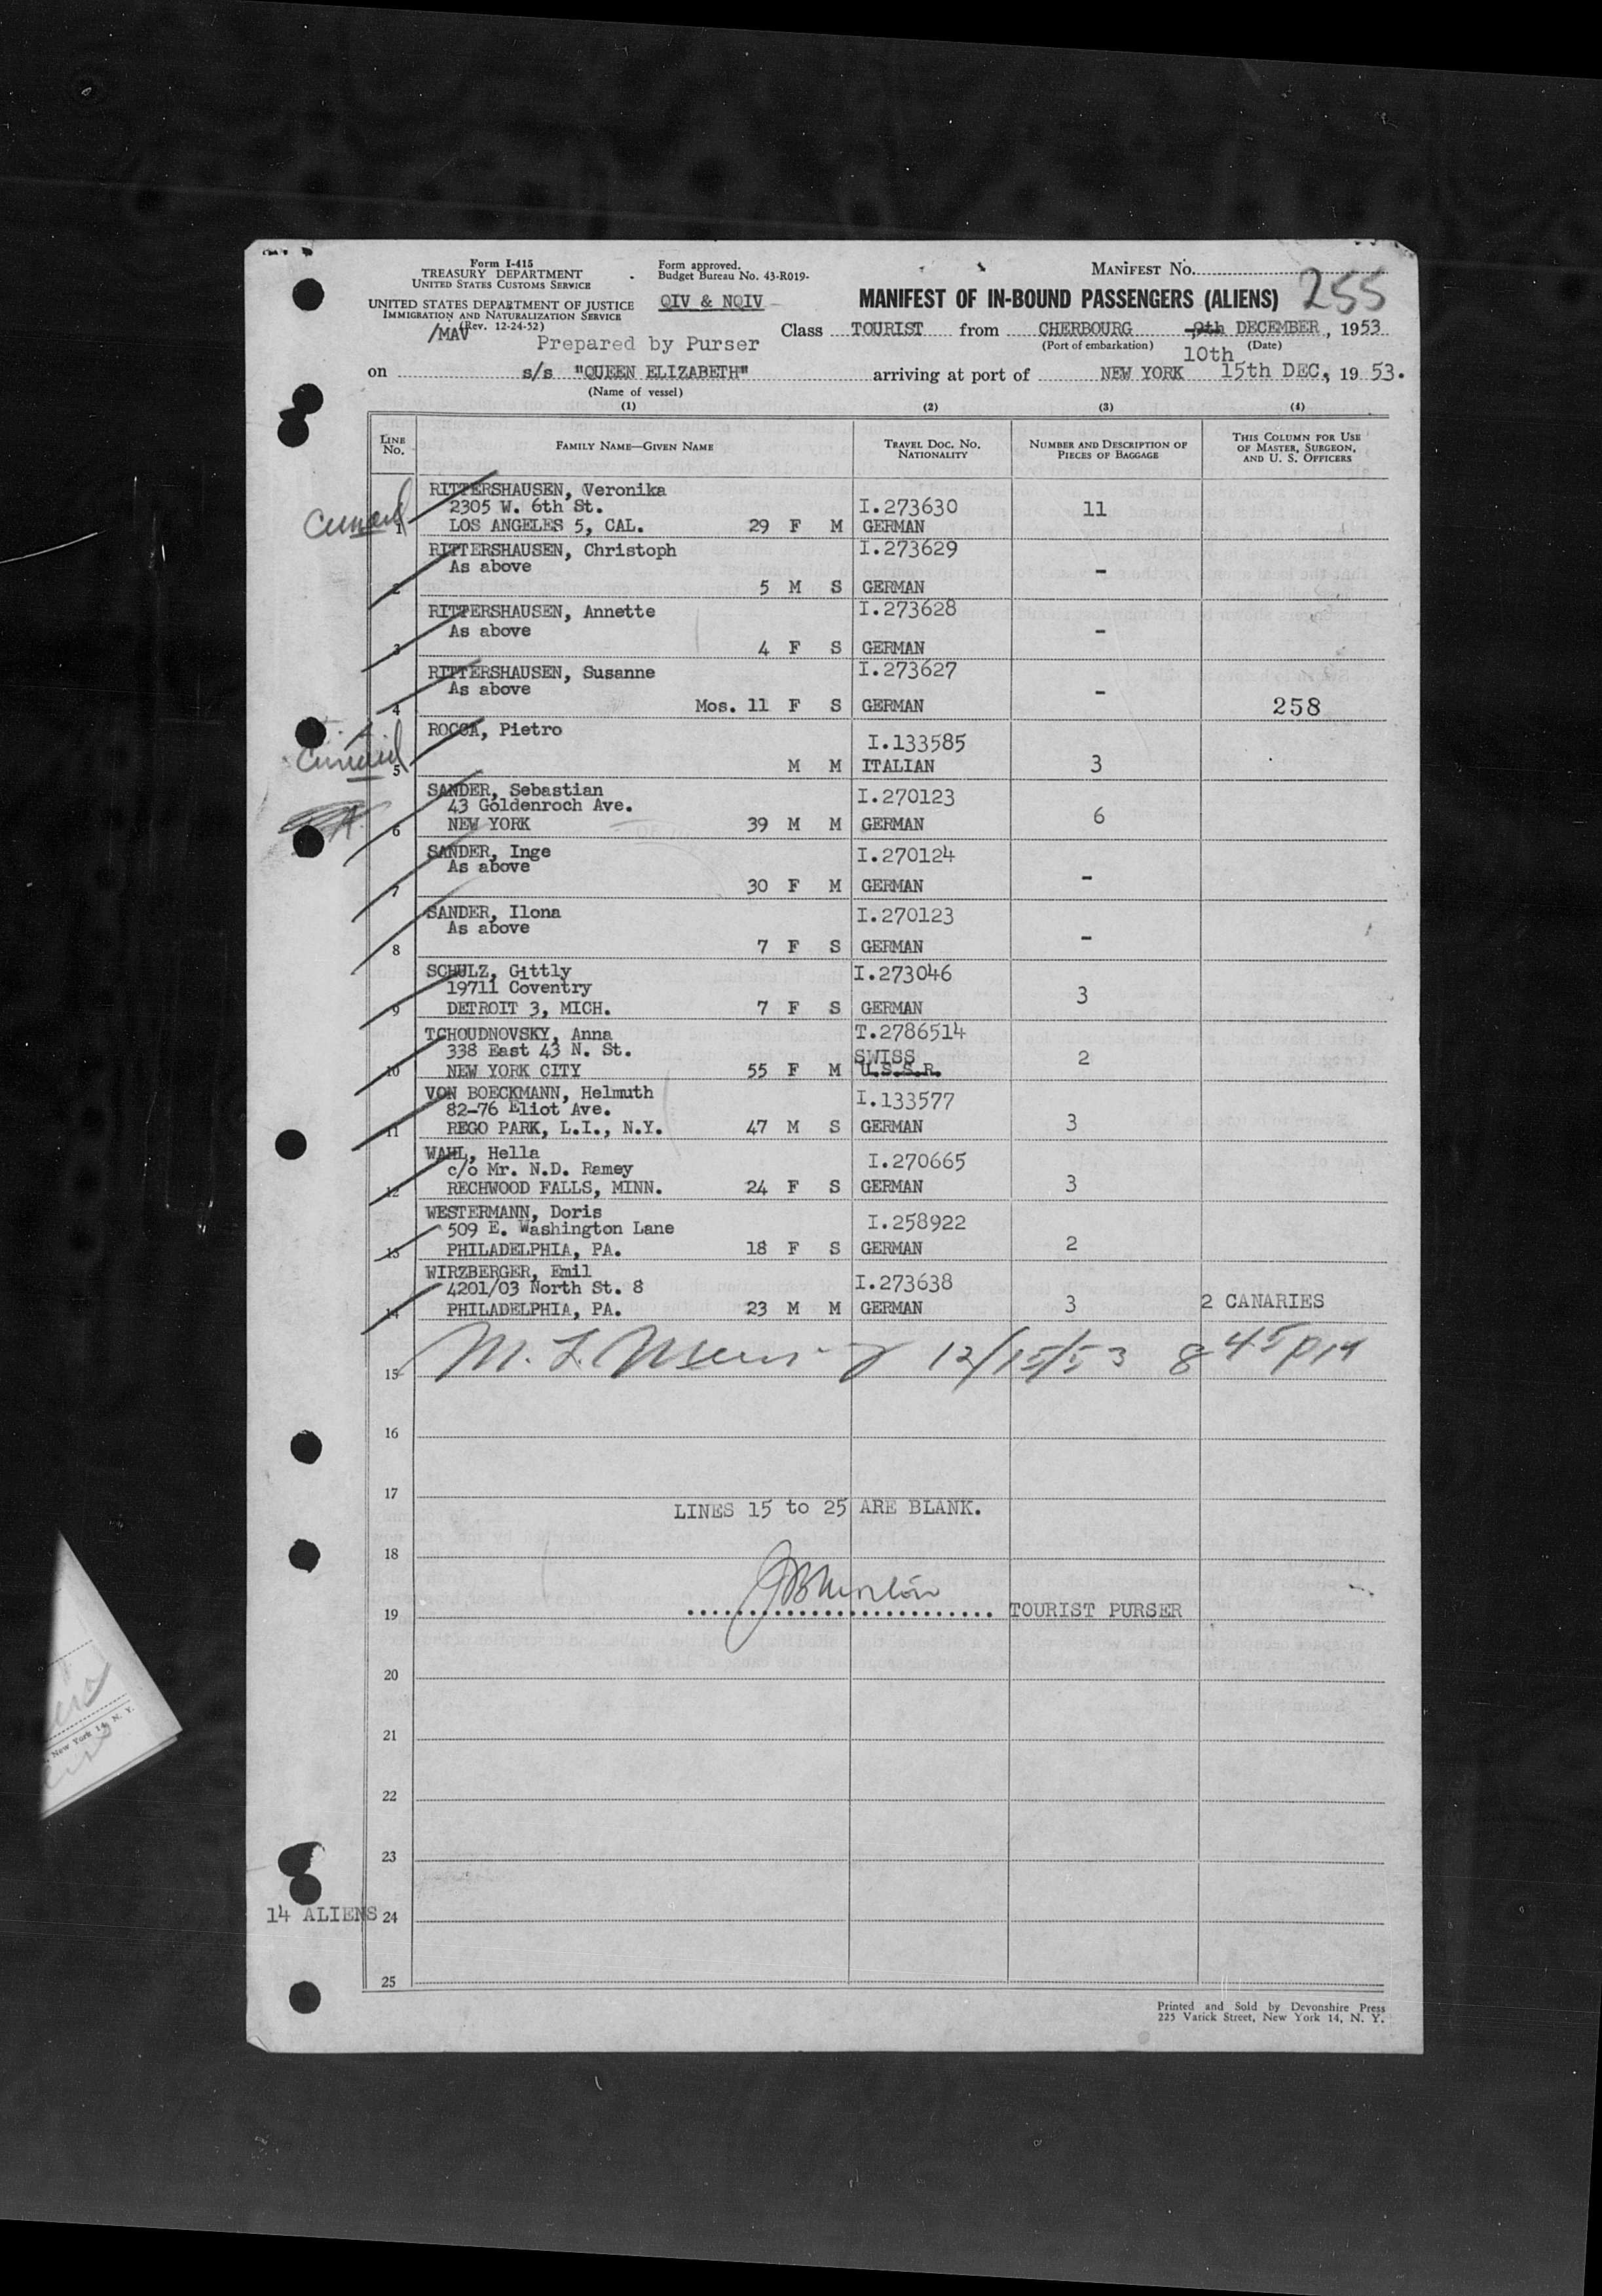 Form I-415
TREASURY DEPARTMENT
UNITED STATES CUSTOMS SERVICE
UNITED STATES DEPARTMENT OF JUSTICE
IMMIGRATION AND NATURALIZATION SERVICE
(Rev. 12-24-52)
/MAV
Form approved.
Budget Bureau No. 43-R019-
QIV & NQIV
Prepared by Purser
MANIFEST No.
255
MANIFEST OF IN-BOUND PASSENGERS (ALIENS)
Class TOURIST from CHERBOURG 9th DECEMBER, 1953
(Port of embarkation) 10th (Date)
on s/s "QUEEN ELIZABETH" arriving at port of NEW YORK 15th DEC, 1953.
(Name of vessel)
(1) (2) (3) (4)
LINE No. FAMILY NAME—GIVEN NAME TRAVEL DOC. NO. NATIONALITY NUMBER AND DESCRIPTION OF PIECES OF BAGGAGE THIS COLUMN FOR USE OF MASTER, SURGEON, AND U. S. OFFICERS
RITTERSHAUSEN, Veronika
2305 W. 6th St. I.273630 11
Cunard 1 LOS ANGELES 5, CAL. 29 F M GERMAN
RITTERSHAUSEN, Christoph I.273629
As above -
2 5 M S GERMAN
RITTERSHAUSEN, Annette I.273628
As above -
3 4 F S GERMAN
RITTERSHAUSEN, Susanne I.273627
As above -
4 Mos. 11 F S GERMAN 258
ROCCA, Pietro I.133585
Cunard 5 M M ITALIAN 3
SANDER, Sebastian I.270123
43 Goldenroch Ave. 6
6 NEW YORK 39 M M GERMAN
SANDER, Inge I.270124
As above -
7 30 F M GERMAN
SANDER, Ilona I.270123
As above -
8 7 F S GERMAN
SCHULZ, Gittly I.273046
19711 Coventry 3
9 DETROIT 3, MICH. 7 F S GERMAN
TCHOUDNOVSKY, Anna T.2786514
338 East 43 N. St. SWISS 2
10 NEW YORK CITY 55 F M U.S.S.R.
VON BOECKMANN, Helmuth I.133577
82-76 Eliot Ave. 3
11 REGO PARK, L.I., N.Y. 47 M S GERMAN
WAHL, Hella I.270665
c/o Mr. N.D. Ramey
12 RECHWOOD FALLS, MINN. 24 F S GERMAN 3
WESTERMANN, Doris I.258922
509 E. Washington Lane
13 PHILADELPHIA, PA. 18 F S GERMAN 2
WIRZBERGER, Emil I.273638
4201/03 North St. 8
14 PHILADELPHIA, PA. 23 M M GERMAN 3 2 CANARIES
15 M. L. 12/15/53 8 45 PM
16
17
LINES 15 to 25 ARE BLANK.
18
19 TOURIST PURSER
20
21
22
23
14 ALIENS 24
25
Printed and Sold by Devonshire Press
225 Varick Street, New York 14, N. Y.
New York 14, N. Y.